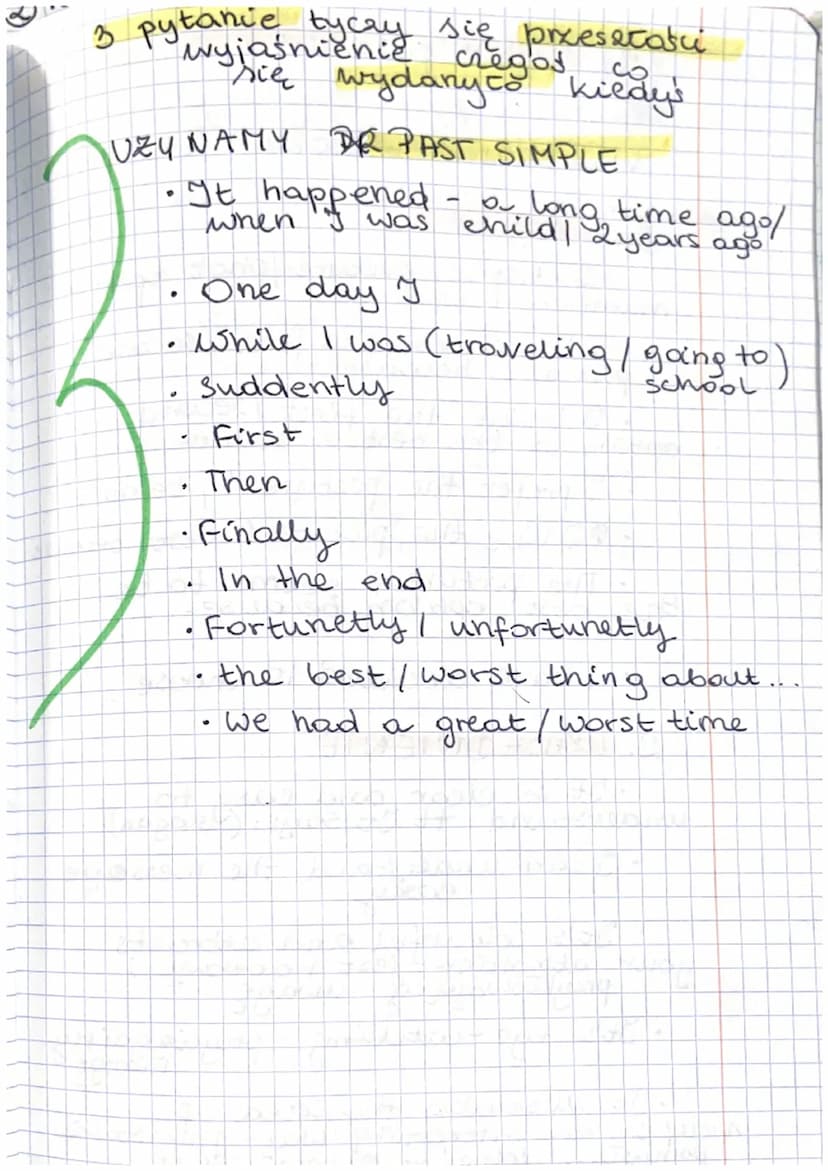 3 pytanie tyczy się przeszłości
wyjaśnienie czegoś co
się wydarzyło kiedyś
UŻYWAMY PAST SIMPLE
• It happened - a long time ago/
when I was child / 2 years ago
• One day I
• While I was (traveling / going to)
school
• Suddently
• First
• Then
• Finally
• In the end
• Fortunetly / unfortunetly
• the best / worst thing about...
• we had a great / worst time